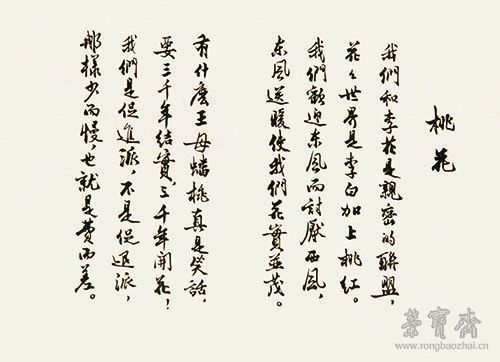 桃花
我們和李花是親密的聯盟，
花々世界是李白加上桃红。
我們歡迎东風而討厭西風，
东風送暖使我們花實並茂。
有什麽王母蟠桃真是笑話，
要三千年結實，三千年開花！
我們是促進派，不是促退派，
那樣少而慢，也就是費而差。
榮寶齋
www.rongbaozhai.cn